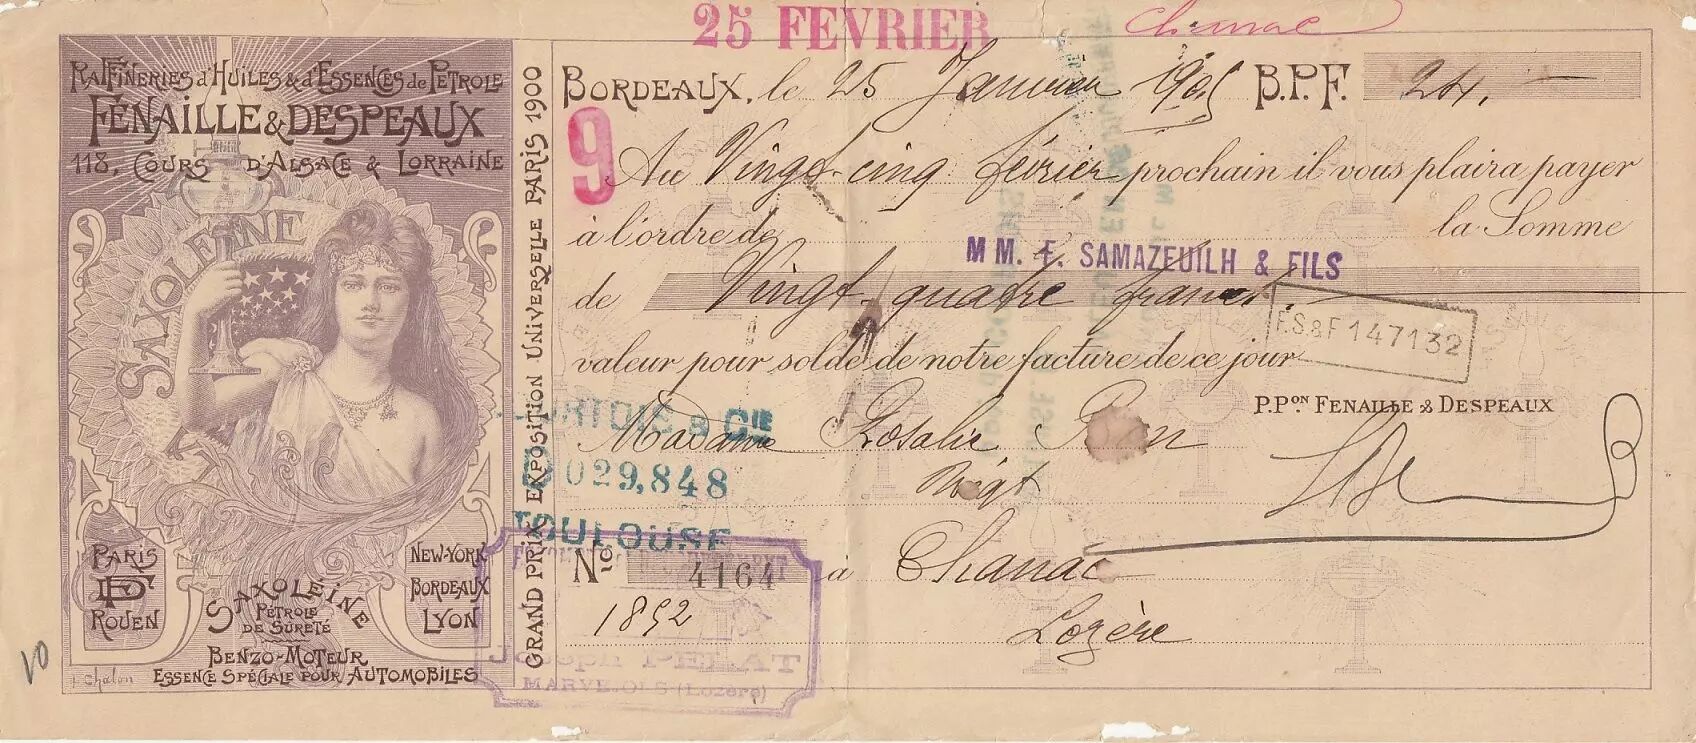 25 FEVRIER
Chanac
RAFFINERIES d'HUILES & d'ESSENCES de PÉTROLE
FÉNAILLE & DESPEAUX
118, COURS D'ALSACE & LORRAINE
SAXOLÉINE
PARIS
FD
ROUEN
NEW-YORK
BORDEAUX
LYON
SAXOLÉINE
PÉTROLE
DE SURETÉ
BENZO-MOTEUR
ESSENCE SPÉCIALE POUR AUTOMOBILES
Chalon
10
GRAND PRIX EXPOSITION UNIVERSELLE PARIS 1900
BORDEAUX, le 25 Janvier 1905 B.P.F. 24.
9
Au Vingt-cinq février prochain il vous plaira payer
à l'ordre de la Somme
MM. F. SAMAZEUILH & FILS
de Vingt-quatre francs.
F.S&F 147132
valeur pour solde de notre facture de ce jour
P.PON FENAILLE & DESPEAUX
& CIE
Madame Rosalie
029,848
TOULOUSE
No 4164 à Chanac
1852
Lozère
Joseph PELAT
MARVEJOLS (Lozère)